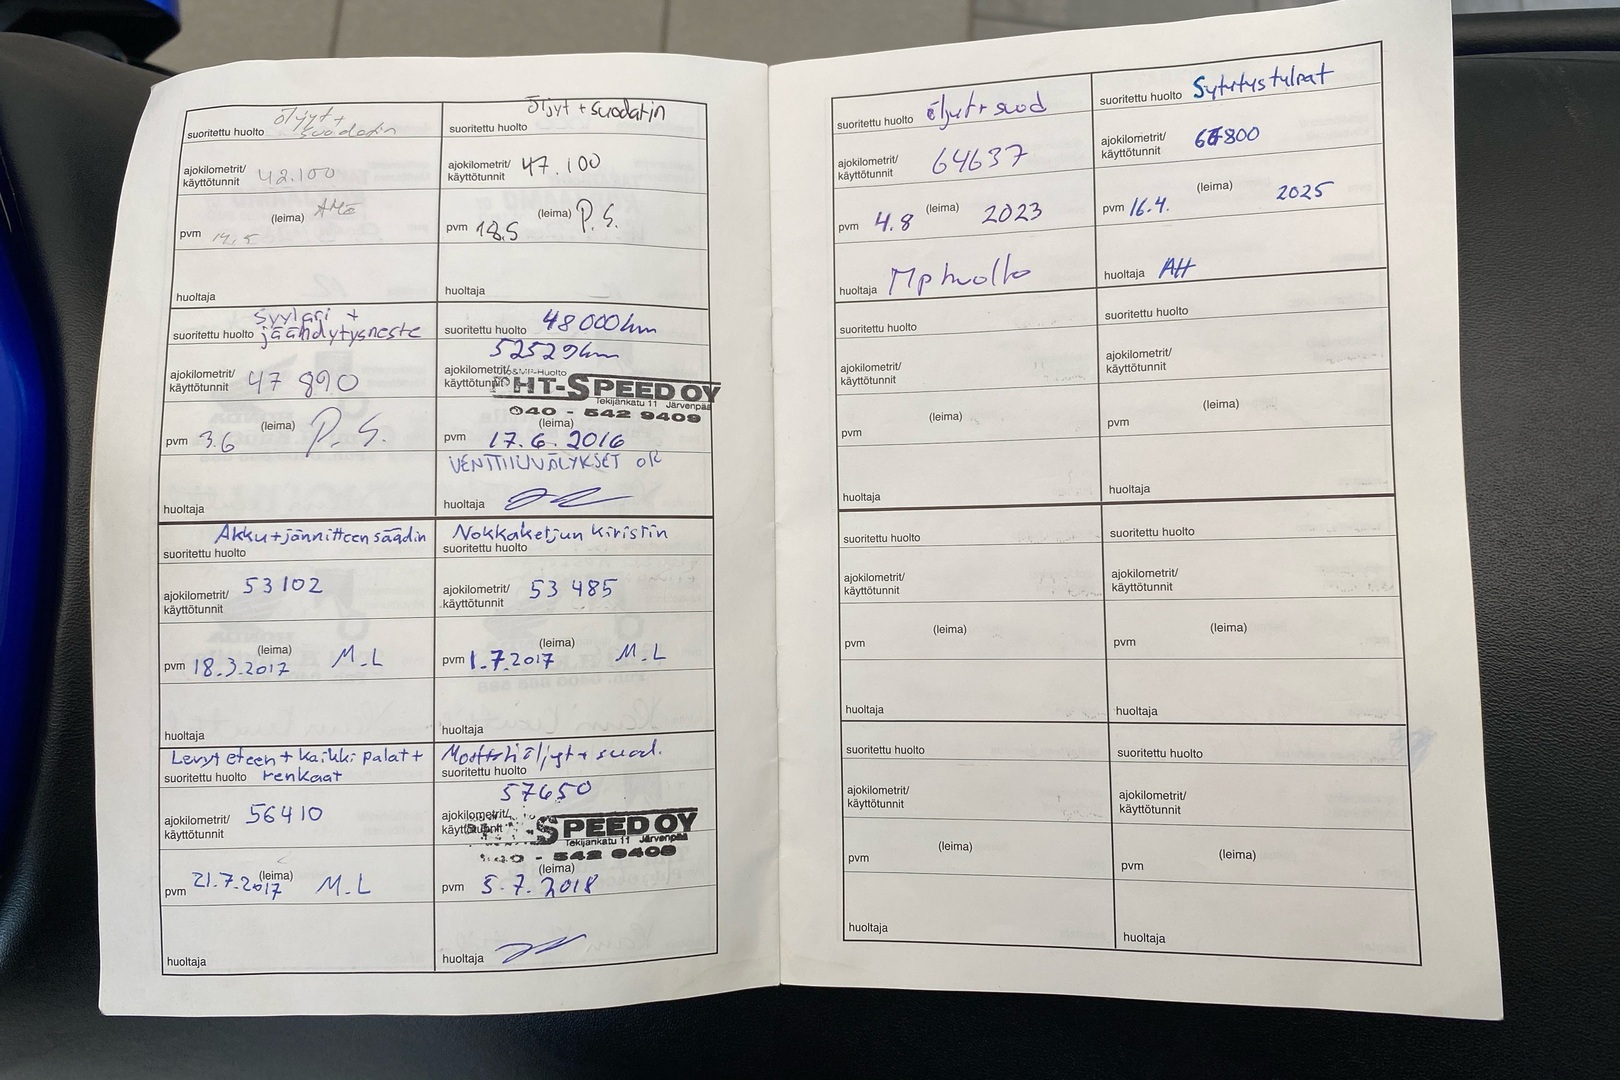 suoritettu huolto öljyt +
suodatin
ajokilometrit/ 42.100
käyttötunnit
(leima)
pvm 14.5
huoltaja
öljyt + suodatin
suoritettu huolto
ajokilometrit/ 47.100
käyttötunnit
(leima) P.S.
pvm 18.5
huoltaja
Syylari +
suoritettu huolto jäähdytysneste
ajokilometrit/
käyttötunnit 47 890
(leima) P.S.
pvm 3.6
huoltaja
suoritettu huolto 48000km
52529km
ajokilometrit/ & MP-Huolto
käyttötunnit HT-SPEED OY
Tekijänkatu 11 Järvenpää
040 - 542 9409
(leima)
pvm 17.6.2016
VENTTIILIVÄLYKSET OK
huoltaja
Akku+jännitteen säädin
suoritettu huolto
ajokilometrit/ 53102
käyttötunnit
(leima)
pvm 18.3.2017 M.L
huoltaja
Nokkaketjun kiristin
suoritettu huolto
ajokilometrit/ 53 485
käyttötunnit
(leima)
pvm 1.7.2017 M.L
huoltaja
Levyt eteen + kaikki palat +
suoritettu huolto renkaat
ajokilometrit/ 56410
käyttötunnit
(leima)
pvm 21.7.2017 M.L
huoltaja
öljyt + suod.
suoritettu huolto
57650
ajokilometrit/
käyttötunnit SPEED OY
Tekijänkatu 11 Järvenpää
- 542 9409
(leima)
pvm 5.7.2018
huoltaja
suoritettu huolto öljyt + suod
ajokilometrit/ 64637
käyttötunnit
(leima)
pvm 4.8 2023
huoltaja Mp huolto
suoritettu huolto Sytytystulpat
ajokilometrit/
käyttötunnit
(leima)
pvm 16.4. 2025
huoltaja AH
suoritettu huolto
ajokilometrit/
käyttötunnit
(leima)
pvm
huoltaja
suoritettu huolto
ajokilometrit/
käyttötunnit
(leima)
pvm
huoltaja
suoritettu huolto
ajokilometrit/
käyttötunnit
(leima)
pvm
huoltaja
suoritettu huolto
ajokilometrit/
käyttötunnit
(leima)
pvm
huoltaja
suoritettu huolto
ajokilometrit/
käyttötunnit
(leima)
pvm
huoltaja
suoritettu huolto
ajokilometrit/
käyttötunnit
(leima)
pvm
huoltaja